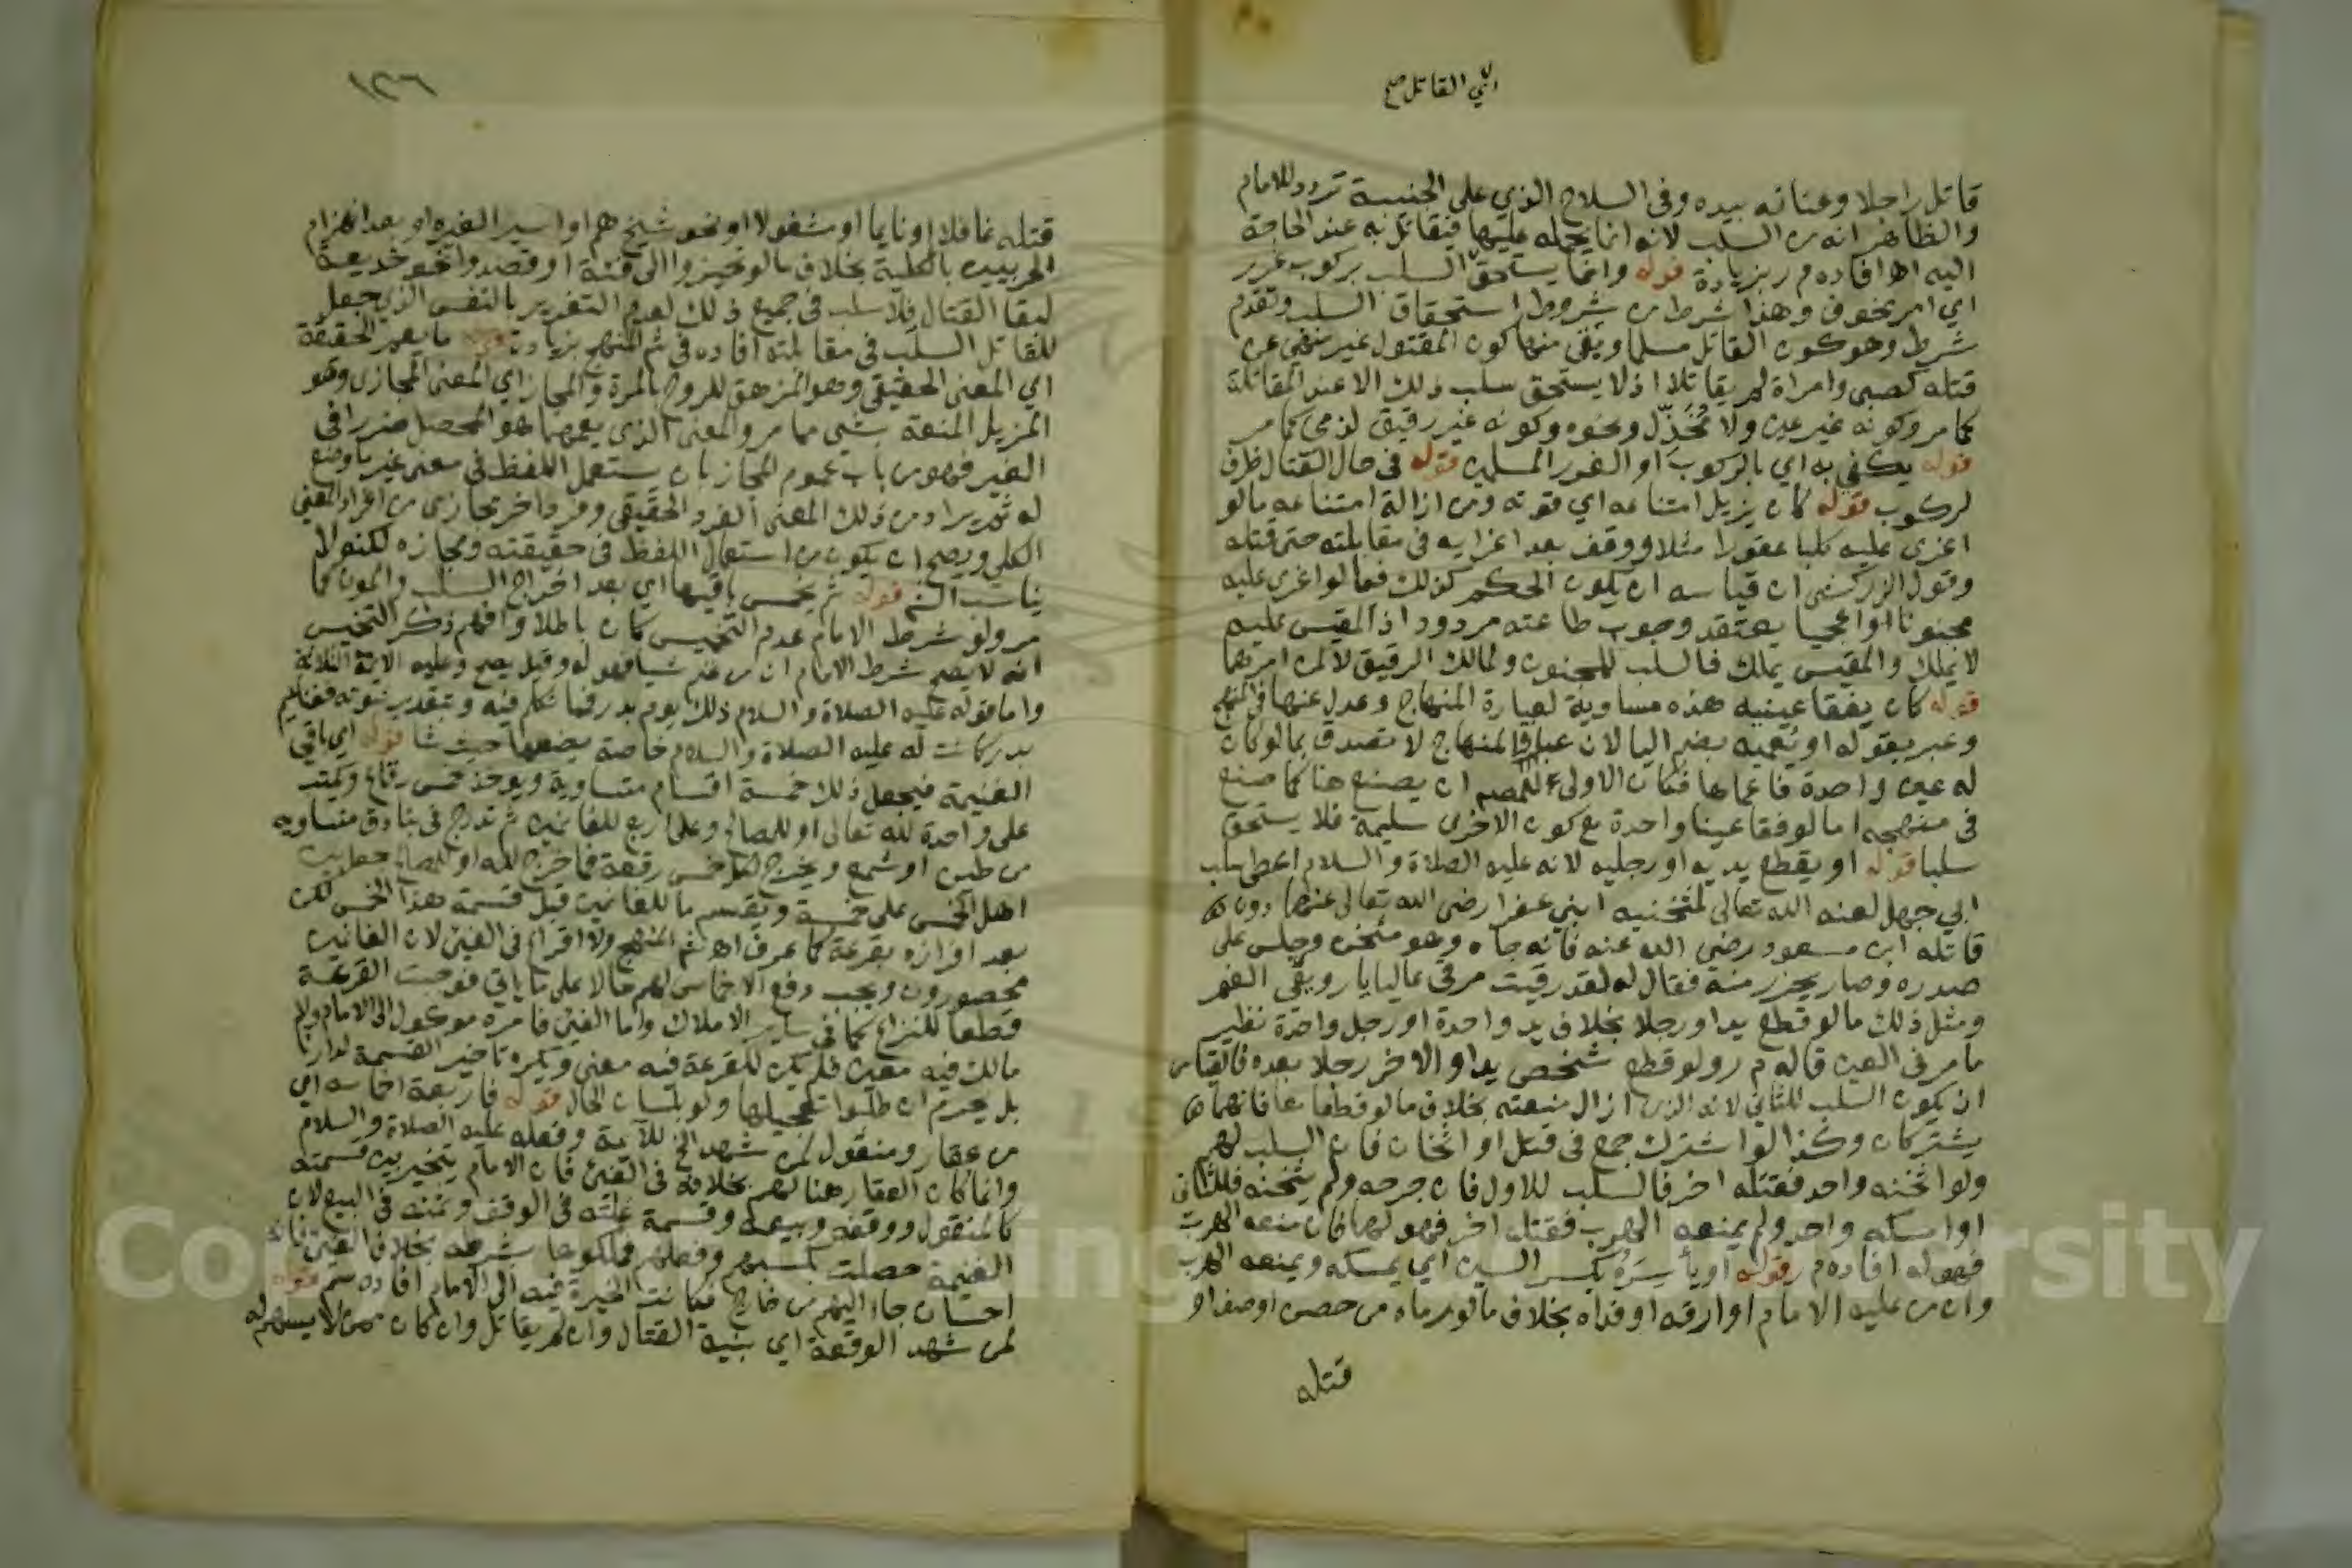 اي القاتل صح
قاتل راجلا وعنانه بيده وفي السلاح الذي على الجنيبة تردد للامام
والظاهر انه من السلب لانه انما يحمله عليها فيقاتل به عند الحاجة
اليه اها فاده م ر بزيادة قوله وانما يستحق السلب بركوب غرر
اي امر مخوف وهذا شرط من شروط استحقاق السلب وتقدم
شرط وهو كون القاتل مسلما وبقي منها كون المقتول غير منهي عن
قتله كصبي وامراة لم يقاتلا اذ لا يستحق سلب ذلك الا عند المقاتلة
كما مر وكونه غير عين ولا مُخَذِّل ونحوه وكونه غير رقيق لذمي كما مر
قوله يكفي به اي بالركوب او الغرر المسلمين قوله في حال القتال ظرف
لركوب قوله كان يزيل امتناعه اي قوته ومن ازالة امتناعه ما لو
اغرى عليه كلبا عقورا مثلا ووقف بعد اغرايه في مقابلته حتى قتله
وقول الزركشي ان قياسه ان يكون الحكم كذلك فيما لو اغرى عليه
مجنونا او اعجميا يعتقد وجوب طاعته مردود اذ المقيس عليه
لا يملك والمقيس يملك فالسلب للمجنون ولمالك الرقيق لا لمن امرهما
قوله كان يفقا عينيه هذه مساوية لعبارة المنهاج وعدل عنها في المنهج
وعبر بقوله او يُعميه بضم اليا لان عبارة المنهاج لا تصدق بما لو كان
له عين واحدة فاعماها فكان الاولى للمصم ان يصنع هنا كما صنع
في منهجه اما لو فقا عينا واحدة مع كون الاخرى سليمة فلا يستحق
سلبا قوله او يقطع يديه او رجليه لانه عليه الصلاة والسلام اعطى سلب
ابي جهل لعنه الله تعالى لمثخنيه ابني عفرا رضي الله تعالى عنهما دون
قاتله ابن مسعود رضي الله عنه فانه جاه وهو مثخن وجلس على
صدره وصار يحزر منه فقال له لقد رقيت مرقى عاليا يا رويعي الغنم
ومثل ذلك ما لو قطع يدا ورجلا بخلاف يد واحدة او رجل واحدة نظير
ما مر في العين قاله م ر ولو قطع شخص يدا والاخر رجلا بعده فالقياس
ان يكون السلب للثاني لانه الذي ازال منعته بخلاف ما لو قطعا معا فانهما
يشتركان وكذا لو اشترك جمع في قتل او اثخان فان السلب لهم
ولو اثخنه واحد فقتله اخر فالسلب للاول فان جرحه ولم يثخنه فللثاني
او امسكه واحد ولم يمنعه الهرب فقتله اخر فهو لهما فان منعه الهرب
فهو له افاده م ر قوله او ياْسِرَهُ بكسر السين اي يمسكه ويمنعه الهرب
وان من عليه الامام او ارقه او فداه بخلاف ما لو رماه من حصن او صف او
قتله
١٣٦
قتله غافلا او نايما او مشغولا او نحو شيخ هم او اسير لغيره او بعد انهزام
الحربيين بالكلية بخلاف ما لو تحيزوا الى فئة او قصدوا نحو خديعة
لبقا القتال فلا سلب في جميع ذلك لعدم التغرير بالنفس الذي جعل
للقاتل السلب في مقابلته افاده في شم المنهج بزيادة قوله ما يعم الحقيقة
اي المعنى الحقيقي وهو المزهق للروح بالمرة والمجاز اي المعنى المجازي وهو
المزيل المنعة بشي مما مر والمعنى الذي يعمهما هو المحصل ضررا في
الغير فهو من باب عموم المجاز بان يستعمل اللفظ في معنى غير ما وضع
له ثم يراد من ذلك المعنى الفرد الحقيقي وفرد اخر مجازي من افراد المعنى
الكلي ويصح ان يكون من استعمال اللفظ في حقيقته ومجازه لكنه لا
يناسب الشم قوله ثم يخمس باقيها اي بعد اخراج السلب والمون كما
مر ولو شرط الامام عدم التخميس كان باطلا وافهم ذكر التخميس
انه لا يصح شرط الامام ان من غنم شيا فهو له وقيل يصح وعليه الايمة الثلاثة
واما قوله عليه الصلاة والسلام ذلك يوم بدر فما تكلم فيه وبتقدير ثبوته فغنايم
بدر كانت له عليه الصلاة والسلام خاصة يضعها حيث شا قوله اي باقي
الغنيمة فيجعل ذلك خمسة اقسام متساوية ويوخذ خمس رقاع ويكتب
على واحدة لله تعالى او للمصالح وعلى اربع للغانمين ثم تدرج في بنادق متساوية
من طين او شمع ويخرج لكل خمس رقعة فما خرج لله او للمصالح جعل بين
اهل الخمس على خمسة ويقسم ما للغانمين قبل قسمة هذا الخمس لكن
بعد افرازه بقرعة كما عرف اه شم المنهج ولا اقراع في الفيئ لان الغانمين
محصورون ويجب دفع الاخماس لهم حالا على ما ياتي فوجبت القرعة
قطعا للنزاع كما في ساير الاملاك واما الفيئ فامره موكول الى الامام ولا
مالك فيه معين فلم يكن للقرعة فيه معنى ويكره تاخير القسمة لدارنا
بل يحرم ان طلبوا تعجيلها ولو بلسان الحال قوله فاربعة اخماسه اي
من عقار ومنقول لمن شهد الخ للآية وفعله عليه الصلاة والسلام
وانما كان العقار هنا لهم بخلافه في الفيئ فان الامام يتخير بين قسمته
كالمنقول ووقفه وبيعه وقسمة غلته في الوقف وثمنه في البيع لان
الغنيمة حصلت بكسبهم وفعلهم فملكوها بشرطه بخلاف الفيئ فانه
احسان جاء اليهم من خارج فكانت الخيرة فيه الى الامام افاده شم قوله
لمن شهد الوقعة اي بنية القتال وان لم يقاتل وان كان ممن لا يسهم له